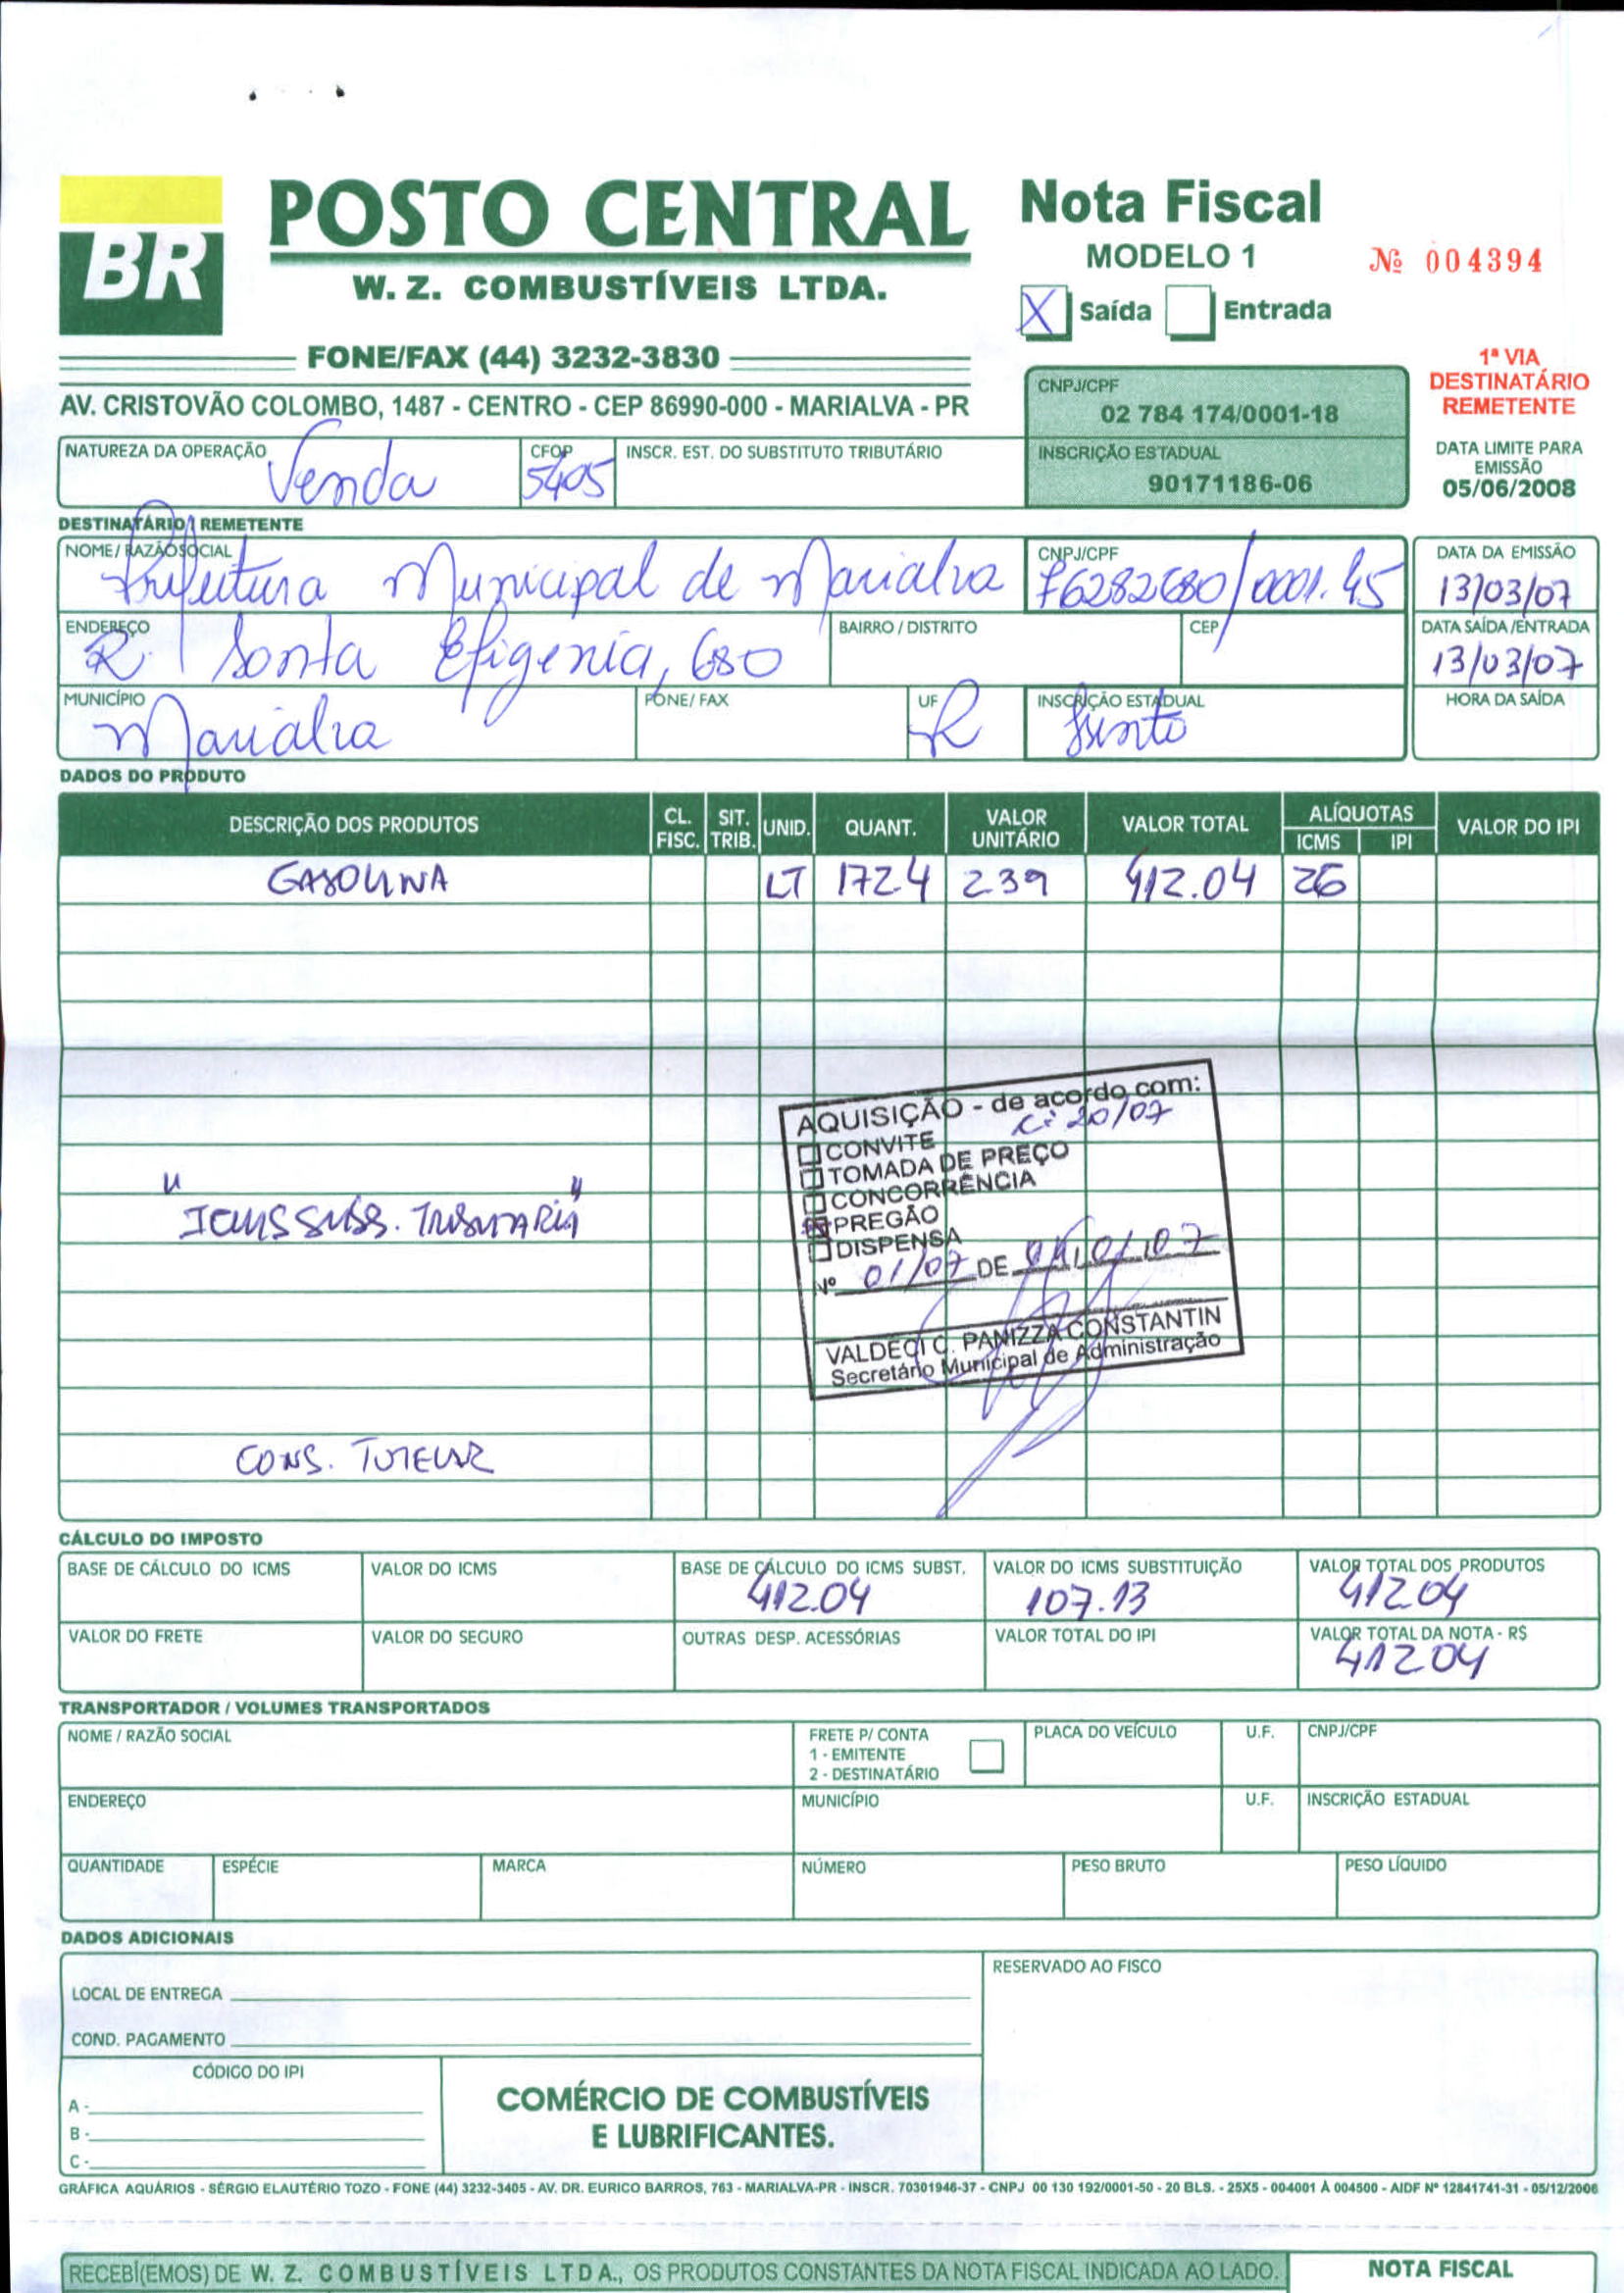 BR
POSTO CENTRAL
W. Z. COMBUSTÍVEIS LTDA.
FONE/FAX (44) 3232-3830
AV. CRISTOVÃO COLOMBO, 1487 - CENTRO - CEP 86990-000 - MARIALVA - PR
Nota Fiscal
MODELO 1
Nº 004394
X Saída Entrada
1ª VIA
DESTINATÁRIO
REMETENTE
CNPJ/CPF
02 784 174/0001-18
INSCRIÇÃO ESTADUAL
90171186-06
DATA LIMITE PARA
EMISSÃO
05/06/2008
NATUREZA DA OPERAÇÃO Venda
CFOP 5405
INSCR. EST. DO SUBSTITUTO TRIBUTÁRIO
DESTINATÁRIO / REMETENTE
NOME / RAZÃO SOCIAL Prefeitura Municipal de Marialva
CNPJ/CPF 76282680/0001.45
DATA DA EMISSÃO 13/03/07
ENDEREÇO R. Santa Efigenia, 680
BAIRRO / DISTRITO
CEP
DATA SAÍDA/ENTRADA 13/03/07
MUNICÍPIO Marialva
FONE/ FAX
UF PR
INSCRIÇÃO ESTADUAL Isento
HORA DA SAÍDA
DADOS DO PRODUTO
DESCRIÇÃO DOS PRODUTOS CL. FISC. SIT. TRIB. UNID. QUANT. VALOR UNITÁRIO VALOR TOTAL ALÍQUOTAS ICMS IPI VALOR DO IPI
GASOLINA LT 172.4 2.39 412.04 26
AQUISIÇÃO - de acordo com:
C: 20/07
CONVITE
TOMADA DE PREÇO
CONCORRÊNCIA
PREGÃO
DISPENSA
Nº 01/07 DE 04/01/07
VALDECI C. PANIZZA CONSTANTIN
Secretário Municipal de Administração
"ICMS SUBS. TRIBUTARIA"
CONS. TUTELAR
CÁLCULO DO IMPOSTO
BASE DE CÁLCULO DO ICMS
VALOR DO ICMS
BASE DE CÁLCULO DO ICMS SUBST. 412.04
VALOR DO ICMS SUBSTITUIÇÃO 107.13
VALOR TOTAL DOS PRODUTOS 412.04
VALOR DO FRETE
VALOR DO SEGURO
OUTRAS DESP. ACESSÓRIAS
VALOR TOTAL DO IPI
VALOR TOTAL DA NOTA - R$ 412.04
TRANSPORTADOR / VOLUMES TRANSPORTADOS
NOME / RAZÃO SOCIAL
FRETE P/ CONTA
1 - EMITENTE
2 - DESTINATÁRIO
PLACA DO VEÍCULO
U.F.
CNPJ/CPF
ENDEREÇO
MUNICÍPIO
U.F.
INSCRIÇÃO ESTADUAL
QUANTIDADE
ESPÉCIE
MARCA
NÚMERO
PESO BRUTO
PESO LÍQUIDO
DADOS ADICIONAIS
LOCAL DE ENTREGA
COND. PAGAMENTO
RESERVADO AO FISCO
CÓDIGO DO IPI
A -
B -
C -
COMÉRCIO DE COMBUSTÍVEIS
E LUBRIFICANTES.
GRÁFICA AQUÁRIOS - SÉRGIO ELAUTÉRIO TOZO - FONE (44) 3232-3405 - AV. DR. EURICO BARROS, 763 - MARIALVA-PR - INSCR. 70301946-37 - CNPJ 00 130 192/0001-50 - 20 BLS. - 25X5 - 004001 À 004500 - AIDF Nº 12841741-31 - 05/12/2006
RECEBI(EMOS) DE W. Z. COMBUSTÍVEIS LTDA., OS PRODUTOS CONSTANTES DA NOTA FISCAL INDICADA AO LADO.
NOTA FISCAL